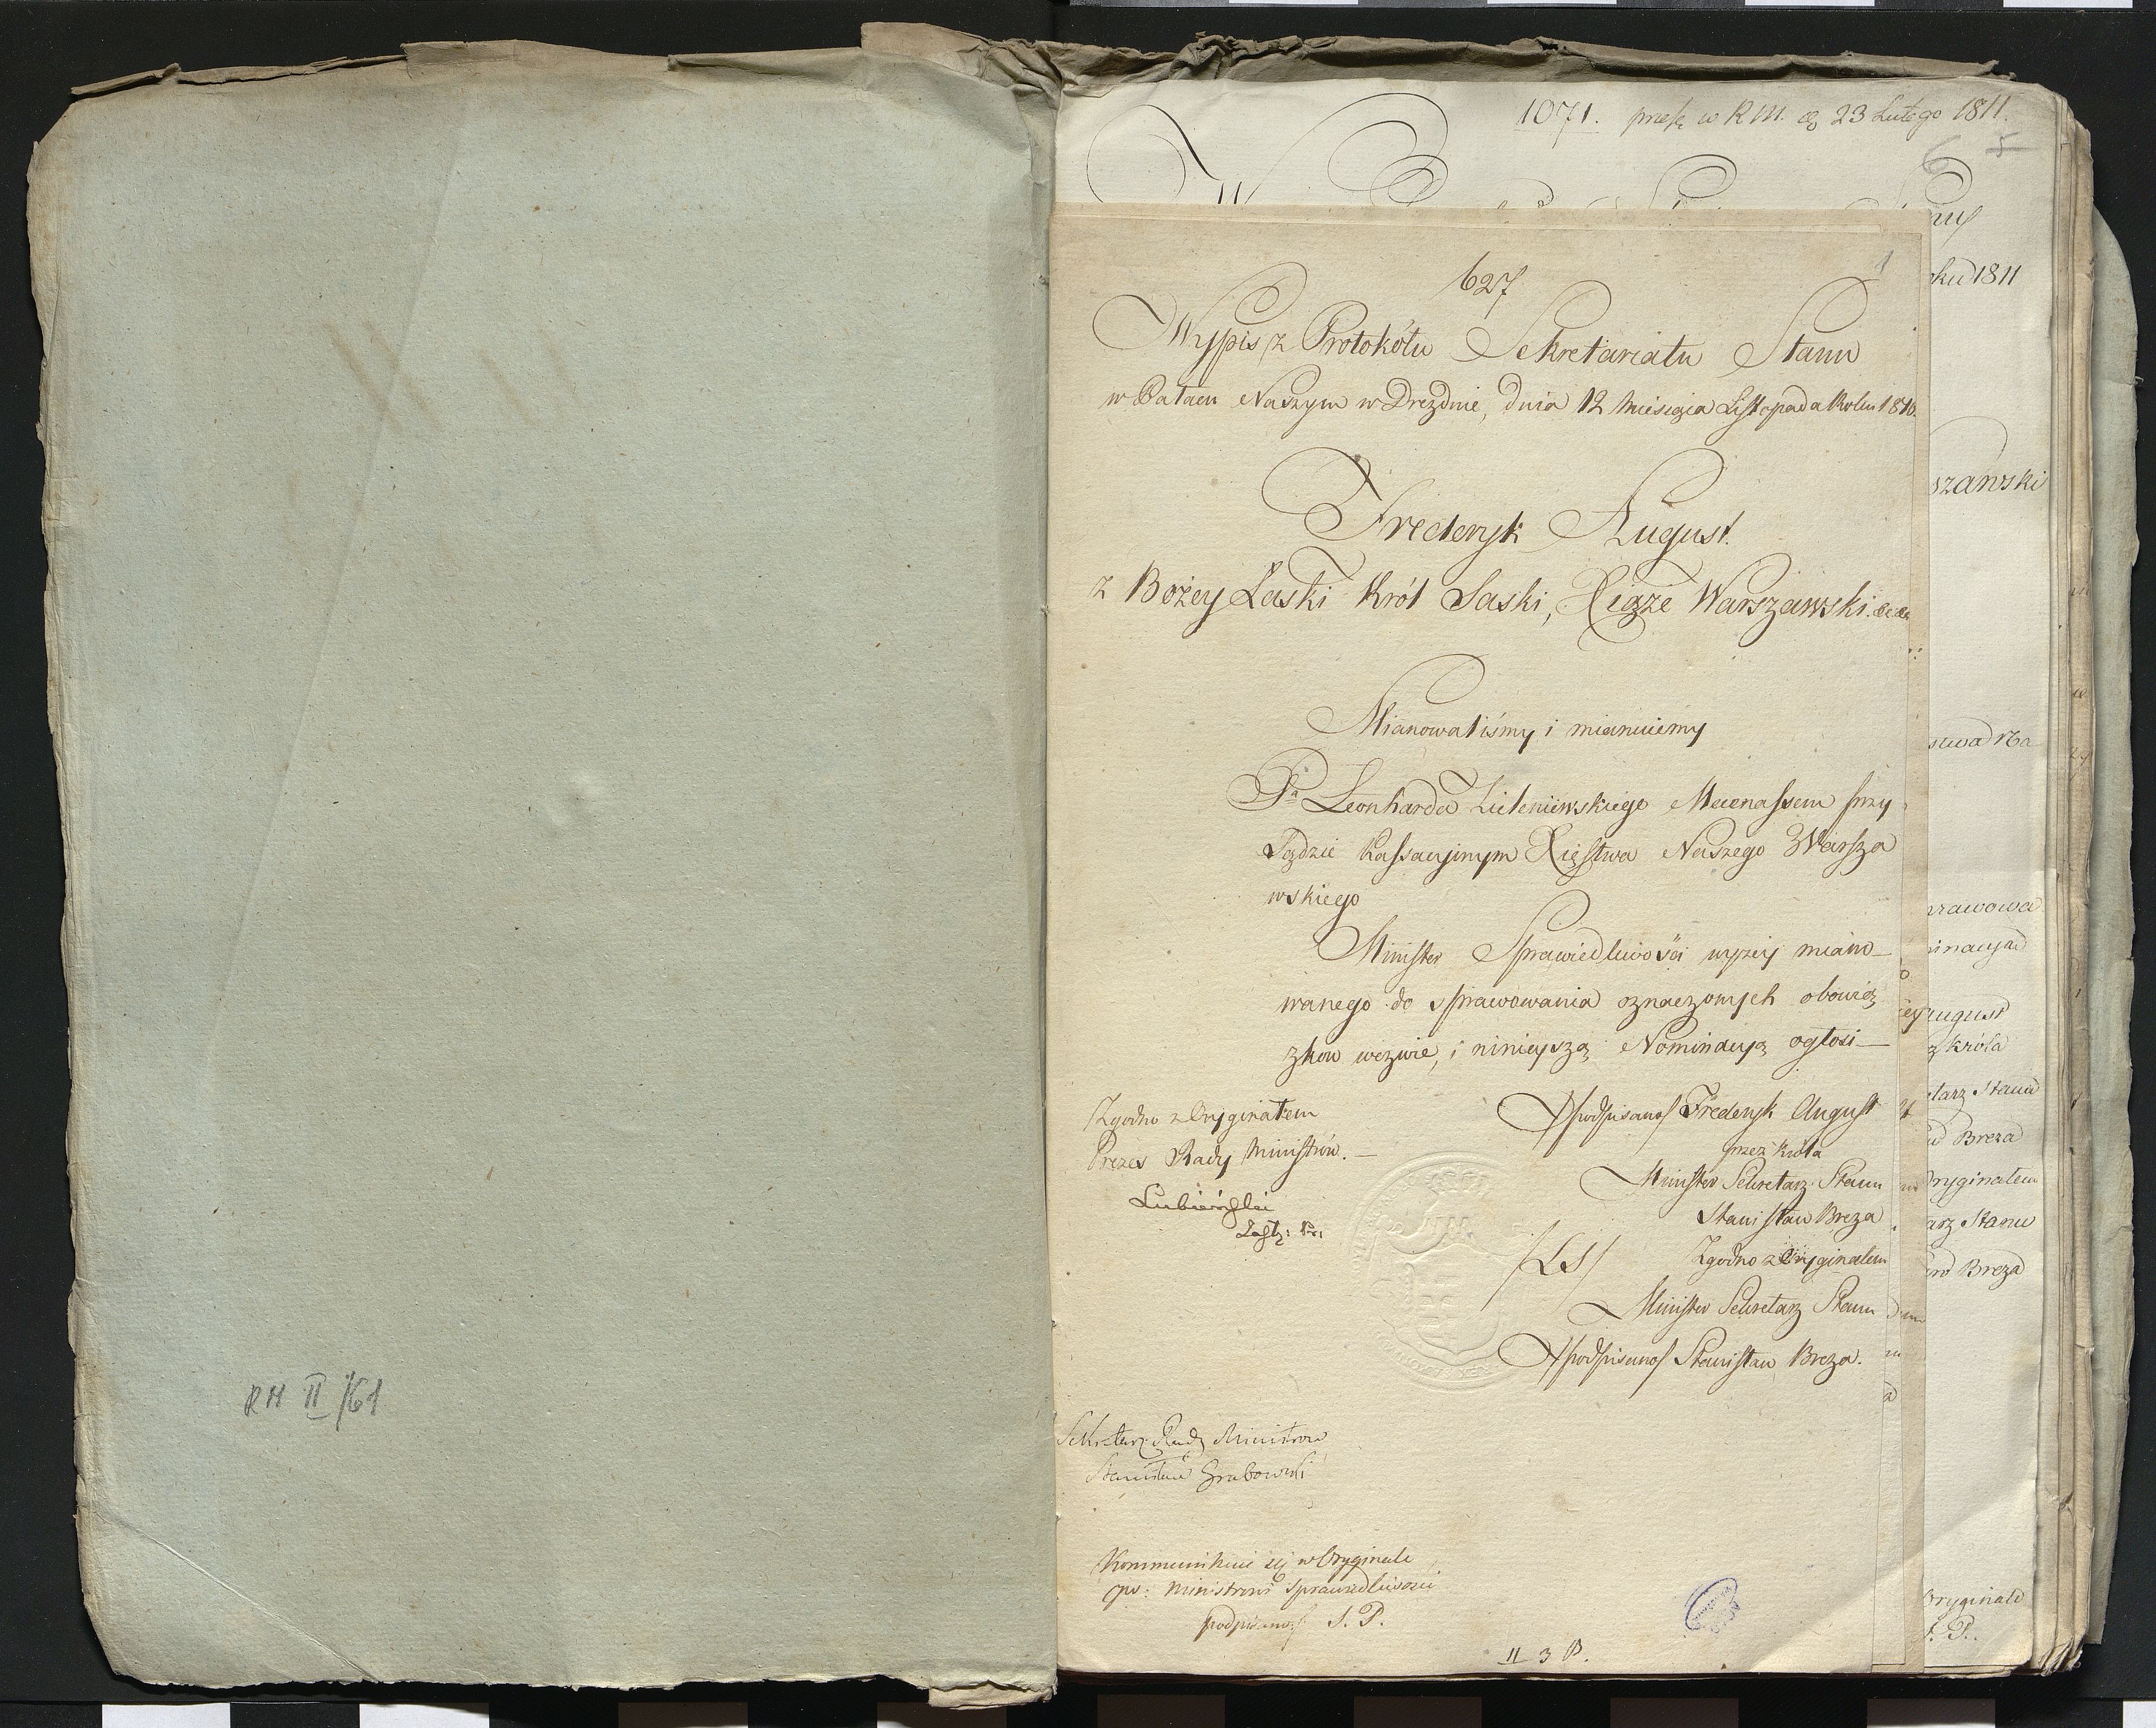 RM II /61
1071. pres. w R M. d. 23 Lutego 1811.
6 5
oku 1811
szawski
627
1
Wypis z Protokółu Sekretariatu Stanu
w Pałacu Naszym w Dreznie, dnia 12 Miesiąca Listopada Roku 1810.
Fryderyk August.
z Bożey Łaski Król Saski, Xiąże Warszawski. &c &c
Mianowaliśmy i mianuiemy
Pa Leonharda Meienassem przy
Sądzie Kassacyjnym Xięstwa Naszego Warsza
wskiego
Minister Sprawiedliwości wyżey miano-
wanego do sprawowania oznaczonych obowią
zkow wezwie, i ninieyszą Nominacyą ogłosi
/podpisano/ Frederyk August
przez Króla
Minister Sekretarz Stanu
Stanisław Breza
/LS/ Zgodno z Oryginałem
Minister Sekretarz Stanu
/podpisano/ Stanisław Breza.
Zgodno z Oryginałem
Prezes Rady Ministrów.
Lubieński
Zast: Pr:
Sekretarz Rady Ministrow
Stanisław Grabowski
Kommunikuie się w Oryginale
JPW: Ministrowi Sprawiedliwości
podpisano/ S. P.
II 3 B.
rawowa
inacyą
ugust
z Króla
tarz Stanu
Breza
Oryginałem
arz Stanu
Breza
Oryginale
S. P.